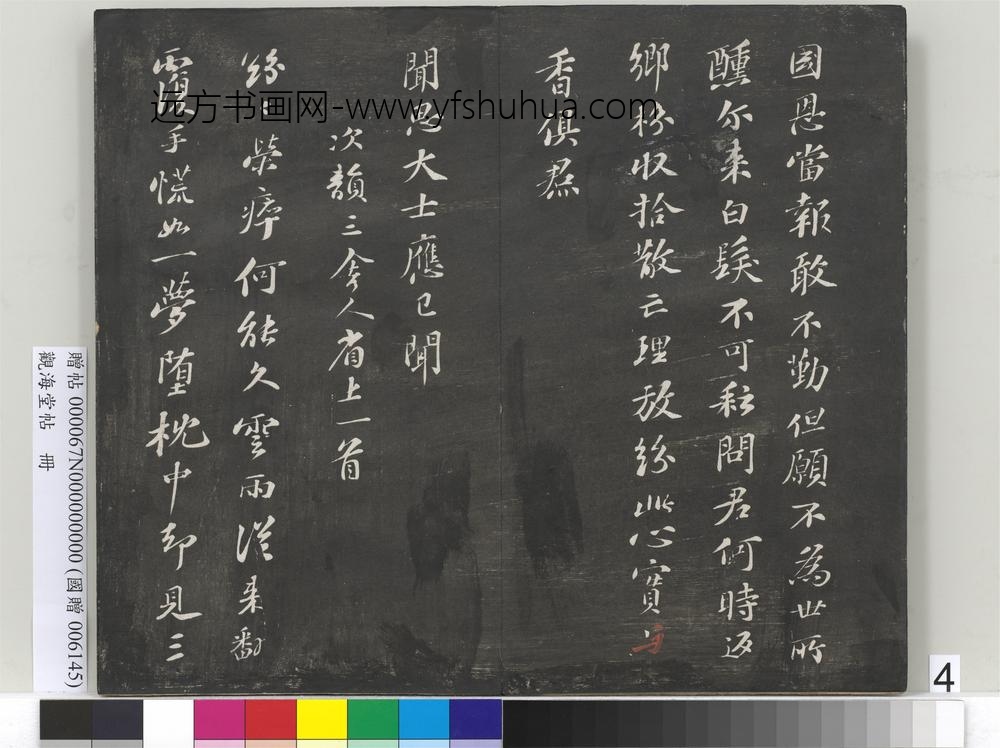 國恩當報敢不勤但願不為世所
醺尔来白髮不可耘問君何時返
鄉枌收拾散亡理放紛此心實与
香俱焄
聞思大士應已聞
次韻三舍人省上一首
紛紛榮瘁何能久雲雨從来翻
覆手慌如一夢墮枕中却見三
远方书画网-www.yfshuhua.com
贈帖 000067N000000000 (國贈 006145)
觀海堂帖 冊
4